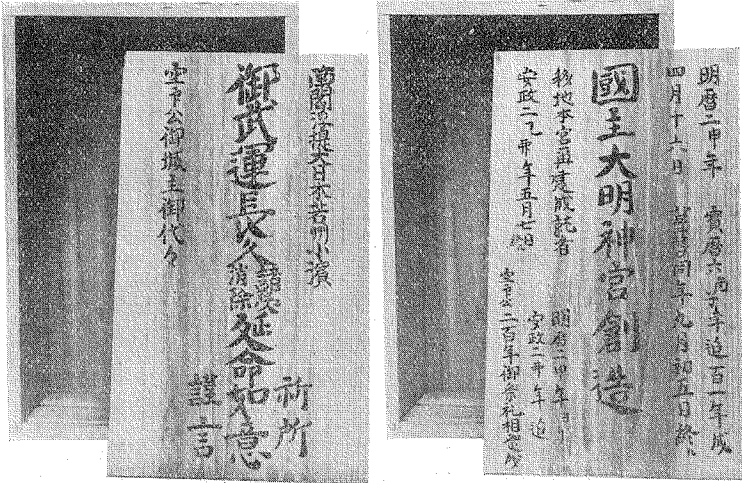 明暦二申年 寳暦六丙子年迄百一年成
四月十六日 同年九月初五日終
國主大明神宮創造
移地本宮再建成就者 明暦二申年
安政二乙卯年五月七日 安政二卯年迄
空印公二百年御祭礼相當
南閻浮提大日本若州小濱
祈所
御武運長久消除延命如意
謹言
空印公御城主御代々